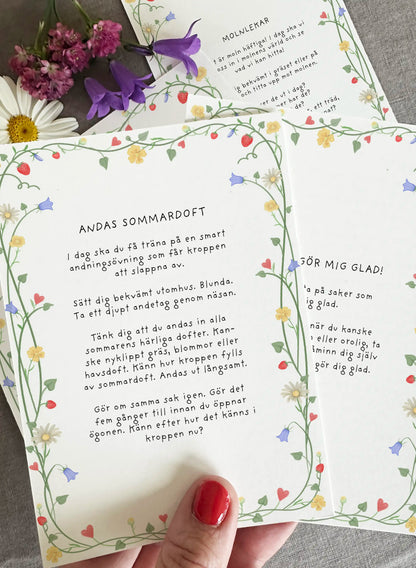 MOLNLEKAR
t är moln häftiga! I dag ska vi
ss in i molnens värld och se
vad vi kan hitta!
ig bekvämt i gräset eller på
och titta upp mot molnen.
er de ut i dag?
er har de?
, ett träd,
ANDAS SOMMARDOFT
I dag ska du få träna på en smart
andningsövning som får kroppen
att slappna av.
Sätt dig bekvämt utomhus. Blunda.
Ta ett djupt andetag genom näsan.
Tänk dig att du andas in alla
sommarens härliga dofter. Kan-
ske nyklippt gräs, blommor eller
havsdoft. Känn hur kroppen fylls
av sommardoft. Andas ut långsamt.
Gör om samma sak igen. Gör det
fem gånger till innan du öppnar
ögonen. Känn efter hur det känns i
kroppen nu?
GÖR MIG GLAD!
a på saker som
ig glad.
när du kanske
n eller orolig, ta
åminn dig själv
gör dig glad.